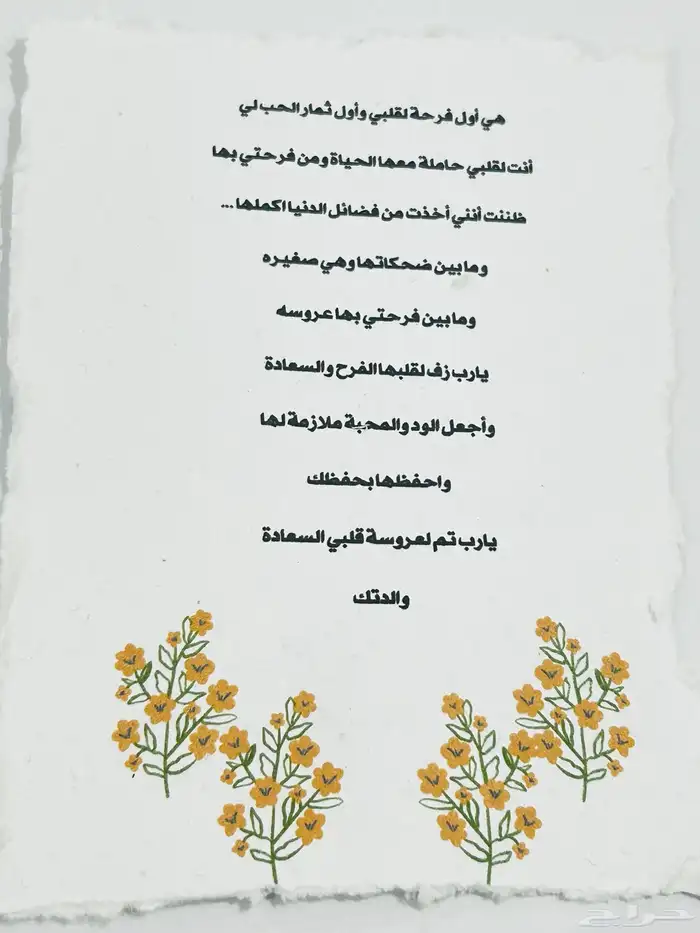 هي أول فرحة لقلبي وأول ثمار الحب لي
أنت لقلبي حاملة معها الحياة ومن فرحتي بها
ظننت أنني أخذت من فضائل الدنيا اكملها ...
ومابين ضحكاتها وهي صغيره
ومابين فرحتي بها عروسه
يارب زف لقلبها الفرح والسعادة
وأجعل الود والمحبة ملازمة لها
واحفظها بحفظك
يارب تم لعروسة قلبي السعادة
والدتك
حراج